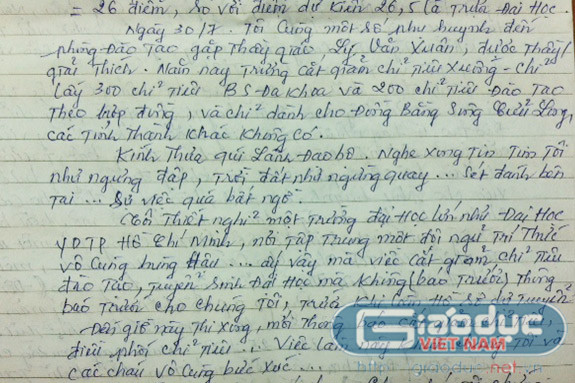 = 26 điểm, so với điểm dự kiến 26,5 là trượt Đại Học.
Ngày 30/7. Tôi cùng một số phụ huynh đến
phòng Đào Tạo gặp Thầy giáo, Lý Văn Xuân, được Thầy
giải thích. Năm nay Trường cắt giảm chỉ tiêu xuống - chỉ
lấy 300 chỉ tiêu BS-Đa khoa và 200 chỉ tiêu Đào Tạo
Theo hợp đồng, và chỉ dành cho Đồng Bằng Sông Cửu Long,
các Tỉnh Thành khác không có.
Kính Thưa quí Lãnh Đạo bộ. Nghe xong Tin Tim Tôi
như ngưng đập, Trời đất như ngừng quay... Sét đánh bên
tai... Sự việc quá bất ngờ.
Thiết nghĩ một Trường đại Học lớn như Đại Học
YDTP Hồ Chí Minh, nơi Tập Trung một đội ngũ Trí Thức
vô cùng hùng hậu... ấy vậy mà việc cắt giảm chỉ tiêu
đào Tạo, Tuyển Sinh Đại Học mà không (báo Trước) Thông
báo Trước cho chúng Tôi, Trước khi
Đến giờ này Thi xong, mới Thông báo
điều phối chỉ tiêu... Việc làm này Tôi và
các cháu vô cùng bức xúc...
Giáo dục
VIỆT NAM
http://giaoduc.net.vn